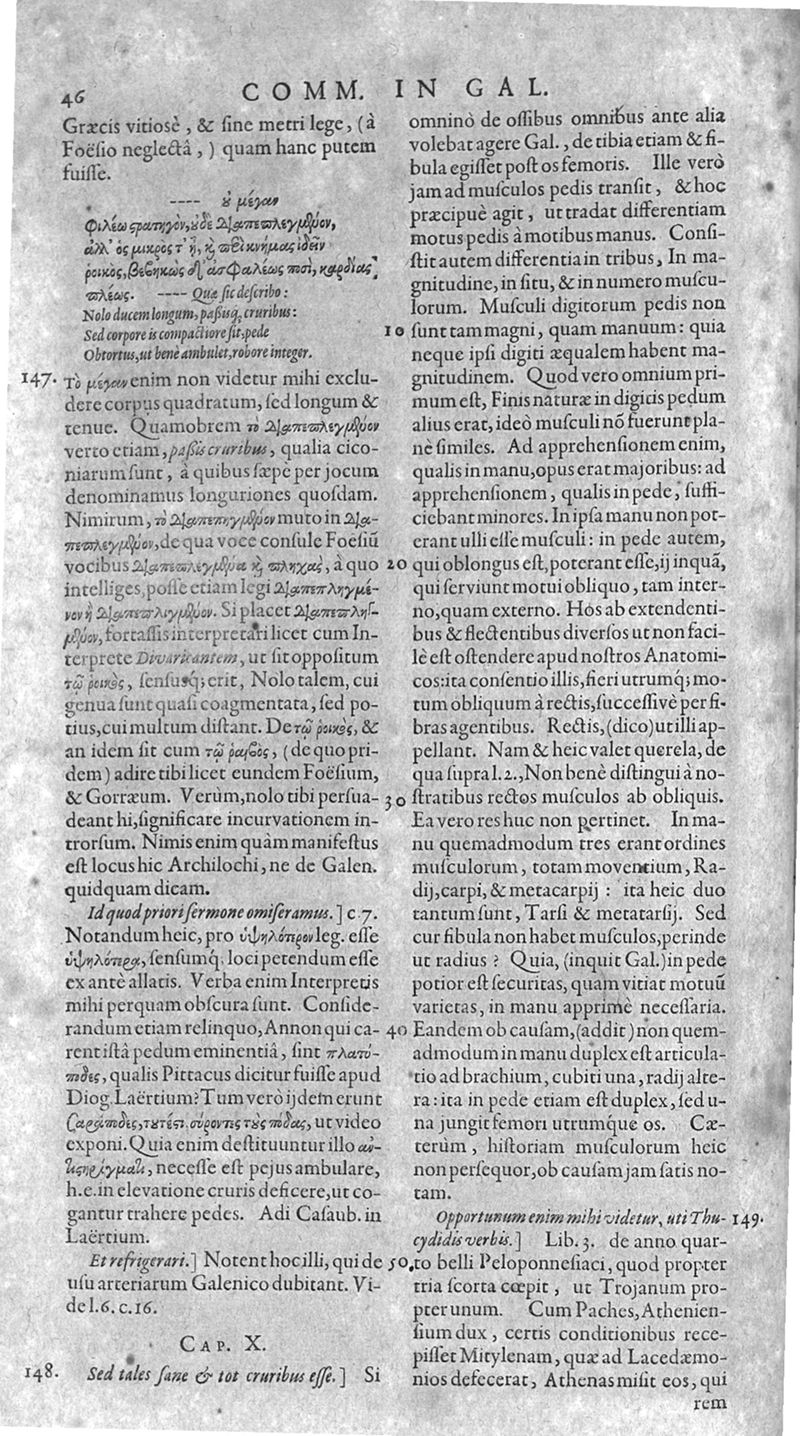 46
COMM. IN GAL.
Græcis vitiosè, & sine metri lege, (à
Foësio neglectâ,) quam hanc putem
fuisse.
---- ȣ́ μέγαν
φιλέω στρατηγὸν, ȣδὲ διαπεπλεγμένον,
ἀλλ' ὃς μικρὸς τ' ᾖ, κ̀ περὶ κνήμας ἰδεῖν
ῥοικὸς, βεβηκὼς δ' ἀσφαλέως ποσὶ, καρδίας
πλέως. ---- Quæ sic describo:
Nolo ducem longum, passisq; cruribus:
Sed corpore is compactiore sit, pede
Obtortus, ut bene ambulet, robore integer.
147. Τὸ μέγαν enim non videtur mihi exclu-
dere corpus quadratum, sed longum &
tenue. Quamobrem τὸ διαπεπλεγμένον
verto etiam, passis cruribus, qualia cico-
niarum sunt, à quibus sæpè per jocum
denominamus longuriones quosdam.
Nimirum, τὸ διαπεπηγμένον muto in δια-
πεπλεγμένον, de qua voce consule Foesiũ
vocibus διαπεπλεγμένα κ̀ πλήχας, à quo
intelliges, posse etiam legi διαπεπληγμέ-
νον ἢ διαπεπλιγμένον. Si placet διαπεπληγ-
μένον, fortassis interpretari licet cum In-
terprete Divaricantem, ut sit oppositum
τῷ ῥοικὸς, sensusq; erit, Nolo talem, cui
genua sunt quasi coagmentata, sed po-
tius, cui multum distant. De τῷ ῥοικὸς, &
an idem sit cum τῷ ῥαιβὸς, (de quo pri-
dem) adire tibi licet eundem Foësium,
& Gorræum. Verùm, nolo tibi persua-
deant hi, significare incurvationem in-
trorsum. Nimis enim quàm manifestus
est locus hic Archilochi, ne de Galen.
quidquam dicam.
Id quod priori sermone omiseramus.] c 7.
Notandum heic, pro ὑψηλότερον leg. esse
ὑψηλότερα, sensumq́. loci petendum esse
ex antè allatis. Verba enim Interpretis
mihi perquam obscura sunt. Conside-
randum etiam relinquo, Annon qui ca-
rent istâ pedum eminentiâ, sint πλατύ-
ποδες, qualis Pittacus dicitur fuisse apud
Diog. Laërtium? Tum verò ijdem erunt
σαράποδες, τȣτέστι σύροντες τȣ̀ς πόδας, ut video
exponi. Quia enim destituuntur illo ἀν-
τιστηρίγματι, necesse est pejus ambulare,
h. e. in elevatione cruris deficere, ut co-
gantur trahere pedes. Adi Casaub. in
Laërtium.
Et refrigerari.] Notent hoc illi, qui de
usu arteriarum Galenico dubitant. Vi-
de l. 6. c. 16.
CAP. X.
148. Sed tales sane & tot cruribus esse.] Si
omninò de ossibus omnibus ante alia
volebat agere Gal., de tibia etiam & fi-
bula egisset post os femoris. Ille verò
jam ad musculos pedis transit, & hoc
præcipuè agit, ut tradat differentiam
motus pedis à motibus manus. Consi-
stit autem differentia in tribus, In ma-
gnitudine, in situ, & in numero muscu-
lorum. Musculi digitorum pedis non
10 sunt tam magni, quam manuum: quia
neque ipsi digiti æqualem habent ma-
gnitudinem. Quod vero omnium pri-
mum est, Finis naturæ in digitis pedum
alius erat, ideó musculi nõ fuerunt pla-
nè similes. Ad apprehensionem enim,
qualis in manu, opus erat majoribus: ad
apprehensionem, qualis in pede, suffi-
ciebant minores. In ipsa manu non pot-
erant ulli esse musculi: in pede autem,
20 qui oblongus est, poterant esse, ij inquã,
qui serviunt motui obliquo, tam inter-
no, quam externo. Hos ab extendenti-
bus & flectentibus diversos ut non faci-
lè est ostendere apud nostros Anatomi-
cos: ita consentio illis, fieri utrumq; mo-
tum obliquum à rectis, successivè per fi-
bras agentibus. Rectis, (dico) ut illi ap-
pellant. Nam & heic valet querela, de
qua supra l. 2., Non benè distingui à no-
30 stratibus rectos musculos ab obliquis.
Ea vero res huc non pertinet. In ma-
nu quemadmodum tres erant ordines
musculorum, totam moventium, Ra-
dij, carpi, & metacarpij: ita heic duo
tantum sunt, Tarsi & metatarsij. Sed
cur fibula non habet musculos, perinde
ut radius? Quia, (inquit Gal.) in pede
potior est securitas, quam vitiat motuũ
varietas, in manu apprimè necessaria.
40 Eandem ob causam, (addit) non quem-
admodum in manu duplex est articula-
tio ad brachium, cubiti una, radij alte-
ra: ita in pede etiam est duplex, sed u-
na jungit femori utrumque os. Cæ-
terùm, historiam musculorum heic
non persequor, ob causam jam satis no-
tam.
Opportunum enim mihi videtur, uti Thu- 149.
cydidis verbis.] Lib. 3. de anno quar-
50. to belli Peloponnesiaci, quod propter
tria scorta cœpit, ut Trojanum pro-
pter unum. Cum Paches, Athenien-
sium dux, certis conditionibus rece-
pisset Mitylenam, quæ ad Lacedæmo-
nios defecerat, Athenas misit eos, qui
rem